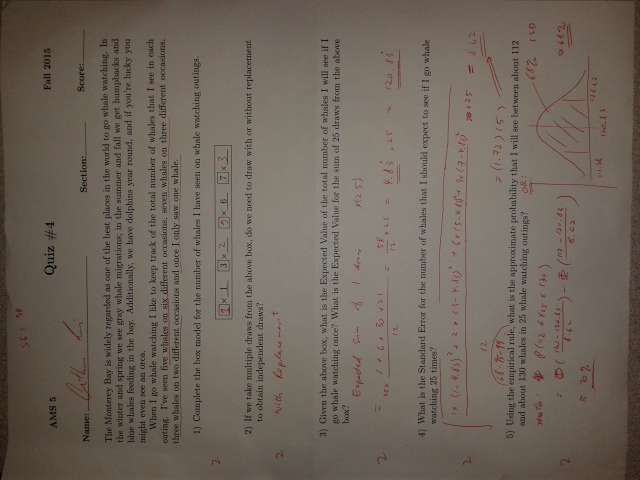 AMS 5
Quiz #4
Fall 2015
Name:
Section:
Score:
The Monterey Bay is widely regarded as one of the best places in the world to go whale watching. In
the winter and spring we see gray whale migrations, in the summer and fall we get humpbacks and
blue whales feeding in the bay. Additionally, we have dolphins year round, and if you're lucky you
might even see an orca.
When I go whale watching I like to keep track of the total number of whales that I see in each
outing. I've seen five whales on six different occasions, seven whales on three different occasions,
three whales on two different occasions and once I only saw one whale.
1) Complete the box model for the number of whales I have seen on whale watching outings.
1 x 1 3 x 2 5 x 6 7 x 3
2
2) If we take multiple draws from the above box, do we need to draw with or without replacement
to obtain independent draws?
with Replacement
2
3) Given the above box, what is the Expected Value of the total number of whales I will see if I
go whale watching once? What is the Expected Value for the sum of 25 draws from the above
box?
Expected sum of 1 draw
= 1 + 6 + 30 + 21 / 12 = 58 / 12 = 4.83 x 25 = 120.83
2
4) What is the Standard Error for the number of whales that I should expect to see if I go whale
watching 25 times?
1x (1-4.83)² + 2 x (3-4.83)² + 6x(5-4.83)² + 3x(7-4.83)² / 12
= (1.72)(5) = 8.62
2
5) Using the empirical rule, what is the approximate probability that I will see between about 112
and about 130 whales in 25 whale watching outings?
OR:
68%
130
≈ 68%
120.83
≈ 70%
2